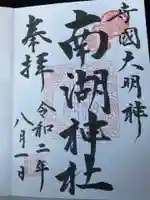 守國大明神
南湖神社
奉拝
令和二年
八月一日